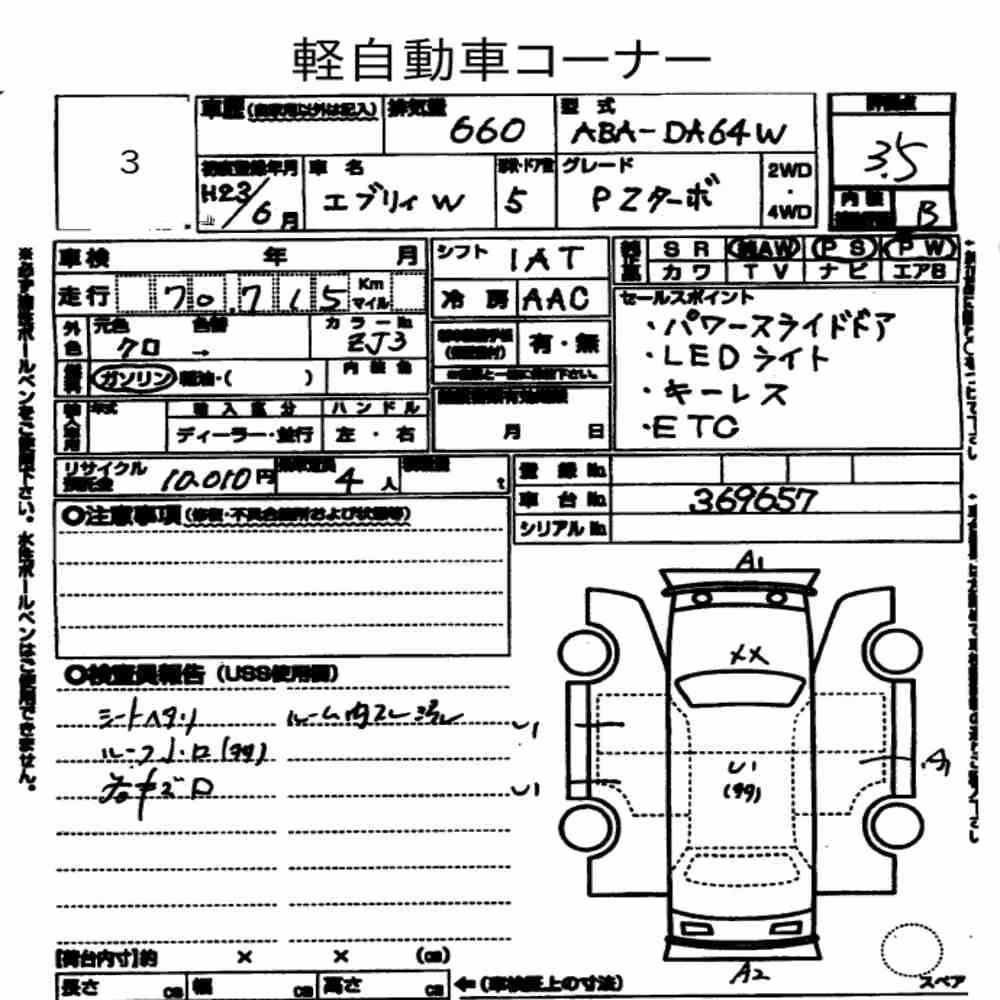 軽自動車コーナー
3
車歴(自家用以外は記入) 排気量 660 型式 ABA-DA64W 評価点 3.5
初度登録年月 H23/6月 車名 エブリィW 形状・ドア数 5 グレード PZターボ 2WD・4WD 内装 B
車検 年 月 シフト IAT SR 純AW PS PW
走行 70,715 Km マイル 冷房 AAC カワ TV ナビ エアB
外色 元色 クロ 色替 → カラーNo. ZJ3 有・無 セールスポイント
・パワースライドドア
・LEDライト
・キーレス
・ETC
燃料 ガソリン・軽油・( ) 内装色
輸入車用 年式 輸入区分 ハンドル
ディーラー・並行 左・右 月 日
リサイクル預託金 10,010円 乗車定員 4人 積載量 t 登録No.
車台No. 369657
シリアルNo.
○注意事項(修復・不具合箇所および状態等)
○検査員報告(USS使用欄)
シートヘタリ
A1
XX
U1
U1
U1
(99)
A1
A2
スペア
[荷台内寸]約 × × (cm)
長さ cm 幅 cm 高さ cm ←(車検証上の寸法)
※必ず油性ボールペンをご使用下さい。水性ボールペンはご使用できません。